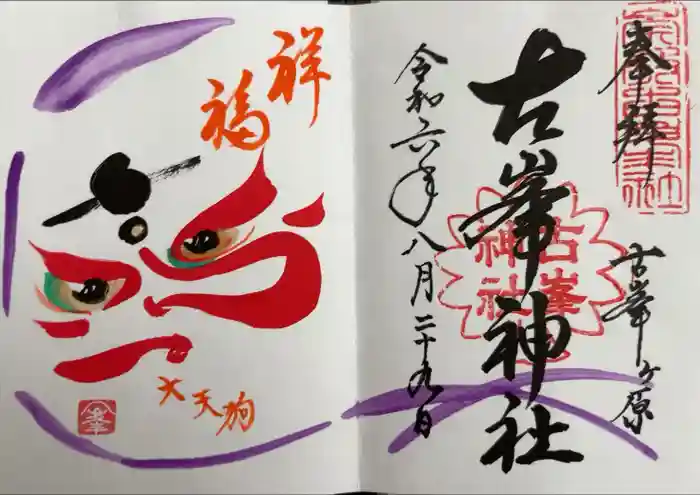 奉拝
古峯ヶ原
古峯神社
古峯
神社
令和六年八月二十九日
祥
福
大天狗